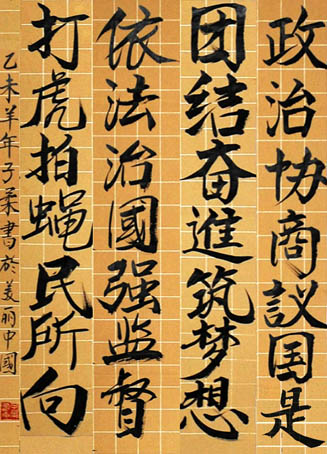 政治协商议国是
团结奋進筑梦想
依法治國强监督
打虎拍蝇民所向
乙未羊年子柔書於美丽中國